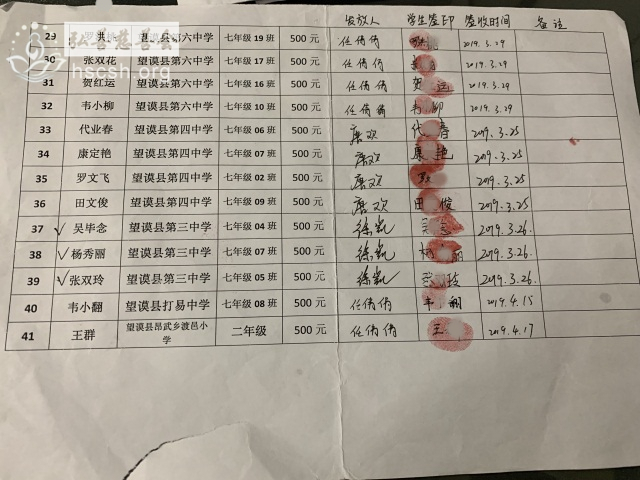 弘善慈善会
hscsh.org
发放人 学生签印 签收时间 备注
29 望谟县第六中学 七年级 19 班 500 元 任倩倩 2019.3.29
30 张双花 望谟县第六中学 七年级 17 班 500 元 任倩倩 2019.3.29
31 贺红运 望谟县第六中学 七年级 16 班 500 元 任倩倩 贺 运 2019.3.29
32 韦小柳 望谟县第六中学 七年级 10 班 500 元 任倩倩 韦 柳 2019.3.29
33 代业春 望谟县第四中学 七年级 06 班 500 元 唐欢 代 春 2019.3.25
34 康定艳 望谟县第四中学 七年级 07 班 500 元 唐欢 康 艳 2019.3.25
35 罗文飞 望谟县第四中学 七年级 02 班 500 元 唐欢 2019.3.25
36 田文俊 望谟县第四中学 七年级 09 班 500 元 唐欢 田 俊 2019.3.25
37 吴毕念 望谟县第三中学 七年级 04 班 500 元 2019.3.26.
38 杨秀丽 望谟县第三中学 七年级 07 班 500 元 丽 2019.3.26.
39 张双玲 望谟县第三中学 七年级 05 班 500 元 张 玲 2019.3.26.
40 韦小翻 望谟县打易中学 七年级 08 班 500 元 任倩倩 韦 翻 2019.4.15
41 王群 望谟县昂武乡渡邑小学 二年级 500 元 任倩倩 王 2019.4.17